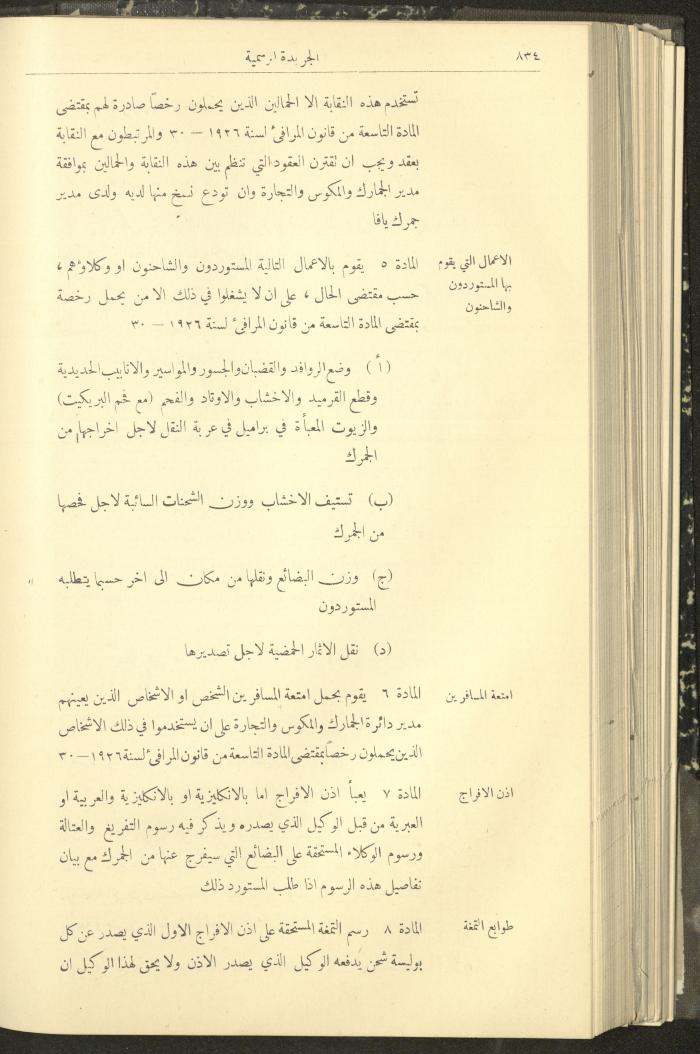 ٨٣٤
الجريدة الرسمية
تستخدم هذه النقابة الا الحمالين الذين يحملون رخصاً صادرة لهم بمقتضى
المادة التاسعة من قانون المرافئ لسنة ١٩٢٦ — ٣٠ والمرتبطون مع النقابة
بعقد ويجب ان تقترن العقود التي تنظم بين هذه النقابة والحمالين بموافقة
مدير الجمارك والمكوس والتجارة وان تودع نسخ منها لديه ولدى مدير
جمرك يافا
الاعمال التي يقوم
بها المستوردون
والشاحنون
المادة ٥ يقوم بالاعمال التالية المستوردون والشاحنون او وكلاؤهم ،
حسب مقتضى الحال ، على ان لا يشغلوا في ذلك الا من يحمل رخصة
بمقتضى المادة التاسعة من قانون المرافئ لسنة ١٩٢٦ — ٣٠
(أ) وضع الروافد والقضبان والجسور والمواسير والانابيب الحديدية
وقطع القرميد والاخشاب والاوتاد والفحم (مع فحم البريكيت)
والزيوت المعبأة في براميل في عربة النقل لاجل اخراجها من
الجمرك
(ب) تستيف الاخشاب ووزن الشحنات السائبة لاجل فحصها
من الجمرك
(ج) وزن البضائع ونقلها من مكان الى اخر حسبما يتطلبه
المستوردون
(د) نقل الاثمار الحمضية لاجل تصديرها
امتعة المسافرين
المادة ٦ يقوم بحمل امتعة المسافرين الشخص او الاشخاص الذين يعينهم
مدير دائرة الجمارك والمكوس والتجارة على ان يستخدموا في ذلك الاشخاص
الذين يحملون رخصاً بمقتضى المادة التاسعة من قانون المرافئ لسنة ١٩٢٦—٣٠
اذن الافراج
المادة ٧ يعبأ اذن الافراج اما بالانكليزية او بالانكليزية والعربية او
العبرية من قبل الوكيل الذي يصدره ويذكر فيه رسوم التفريغ والعتالة
ورسوم الوكلاء المستحقة على البضائع التي سيفرج عنها من الجمرك مع بيان
تفاصيل هذه الرسوم اذا طلب المستورد ذلك
طوابع التمغة
المادة ٨ رسم التمغة المستحقة على اذن الافراج الاول الذي يصدر عن كل
بوليسة شحن يدفعه الوكيل الذي يصدر الاذن ولا يحق لهذا الوكيل ان